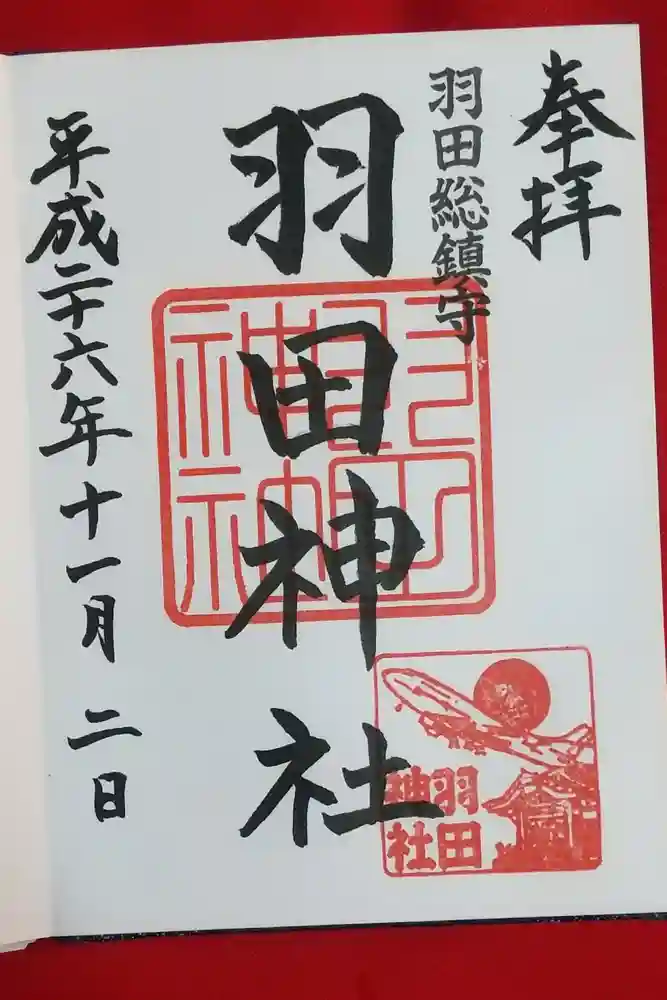 奉拝
羽田総鎮守
羽田神社
平成二十六年十一月二日
羽田神社
羽田
神社